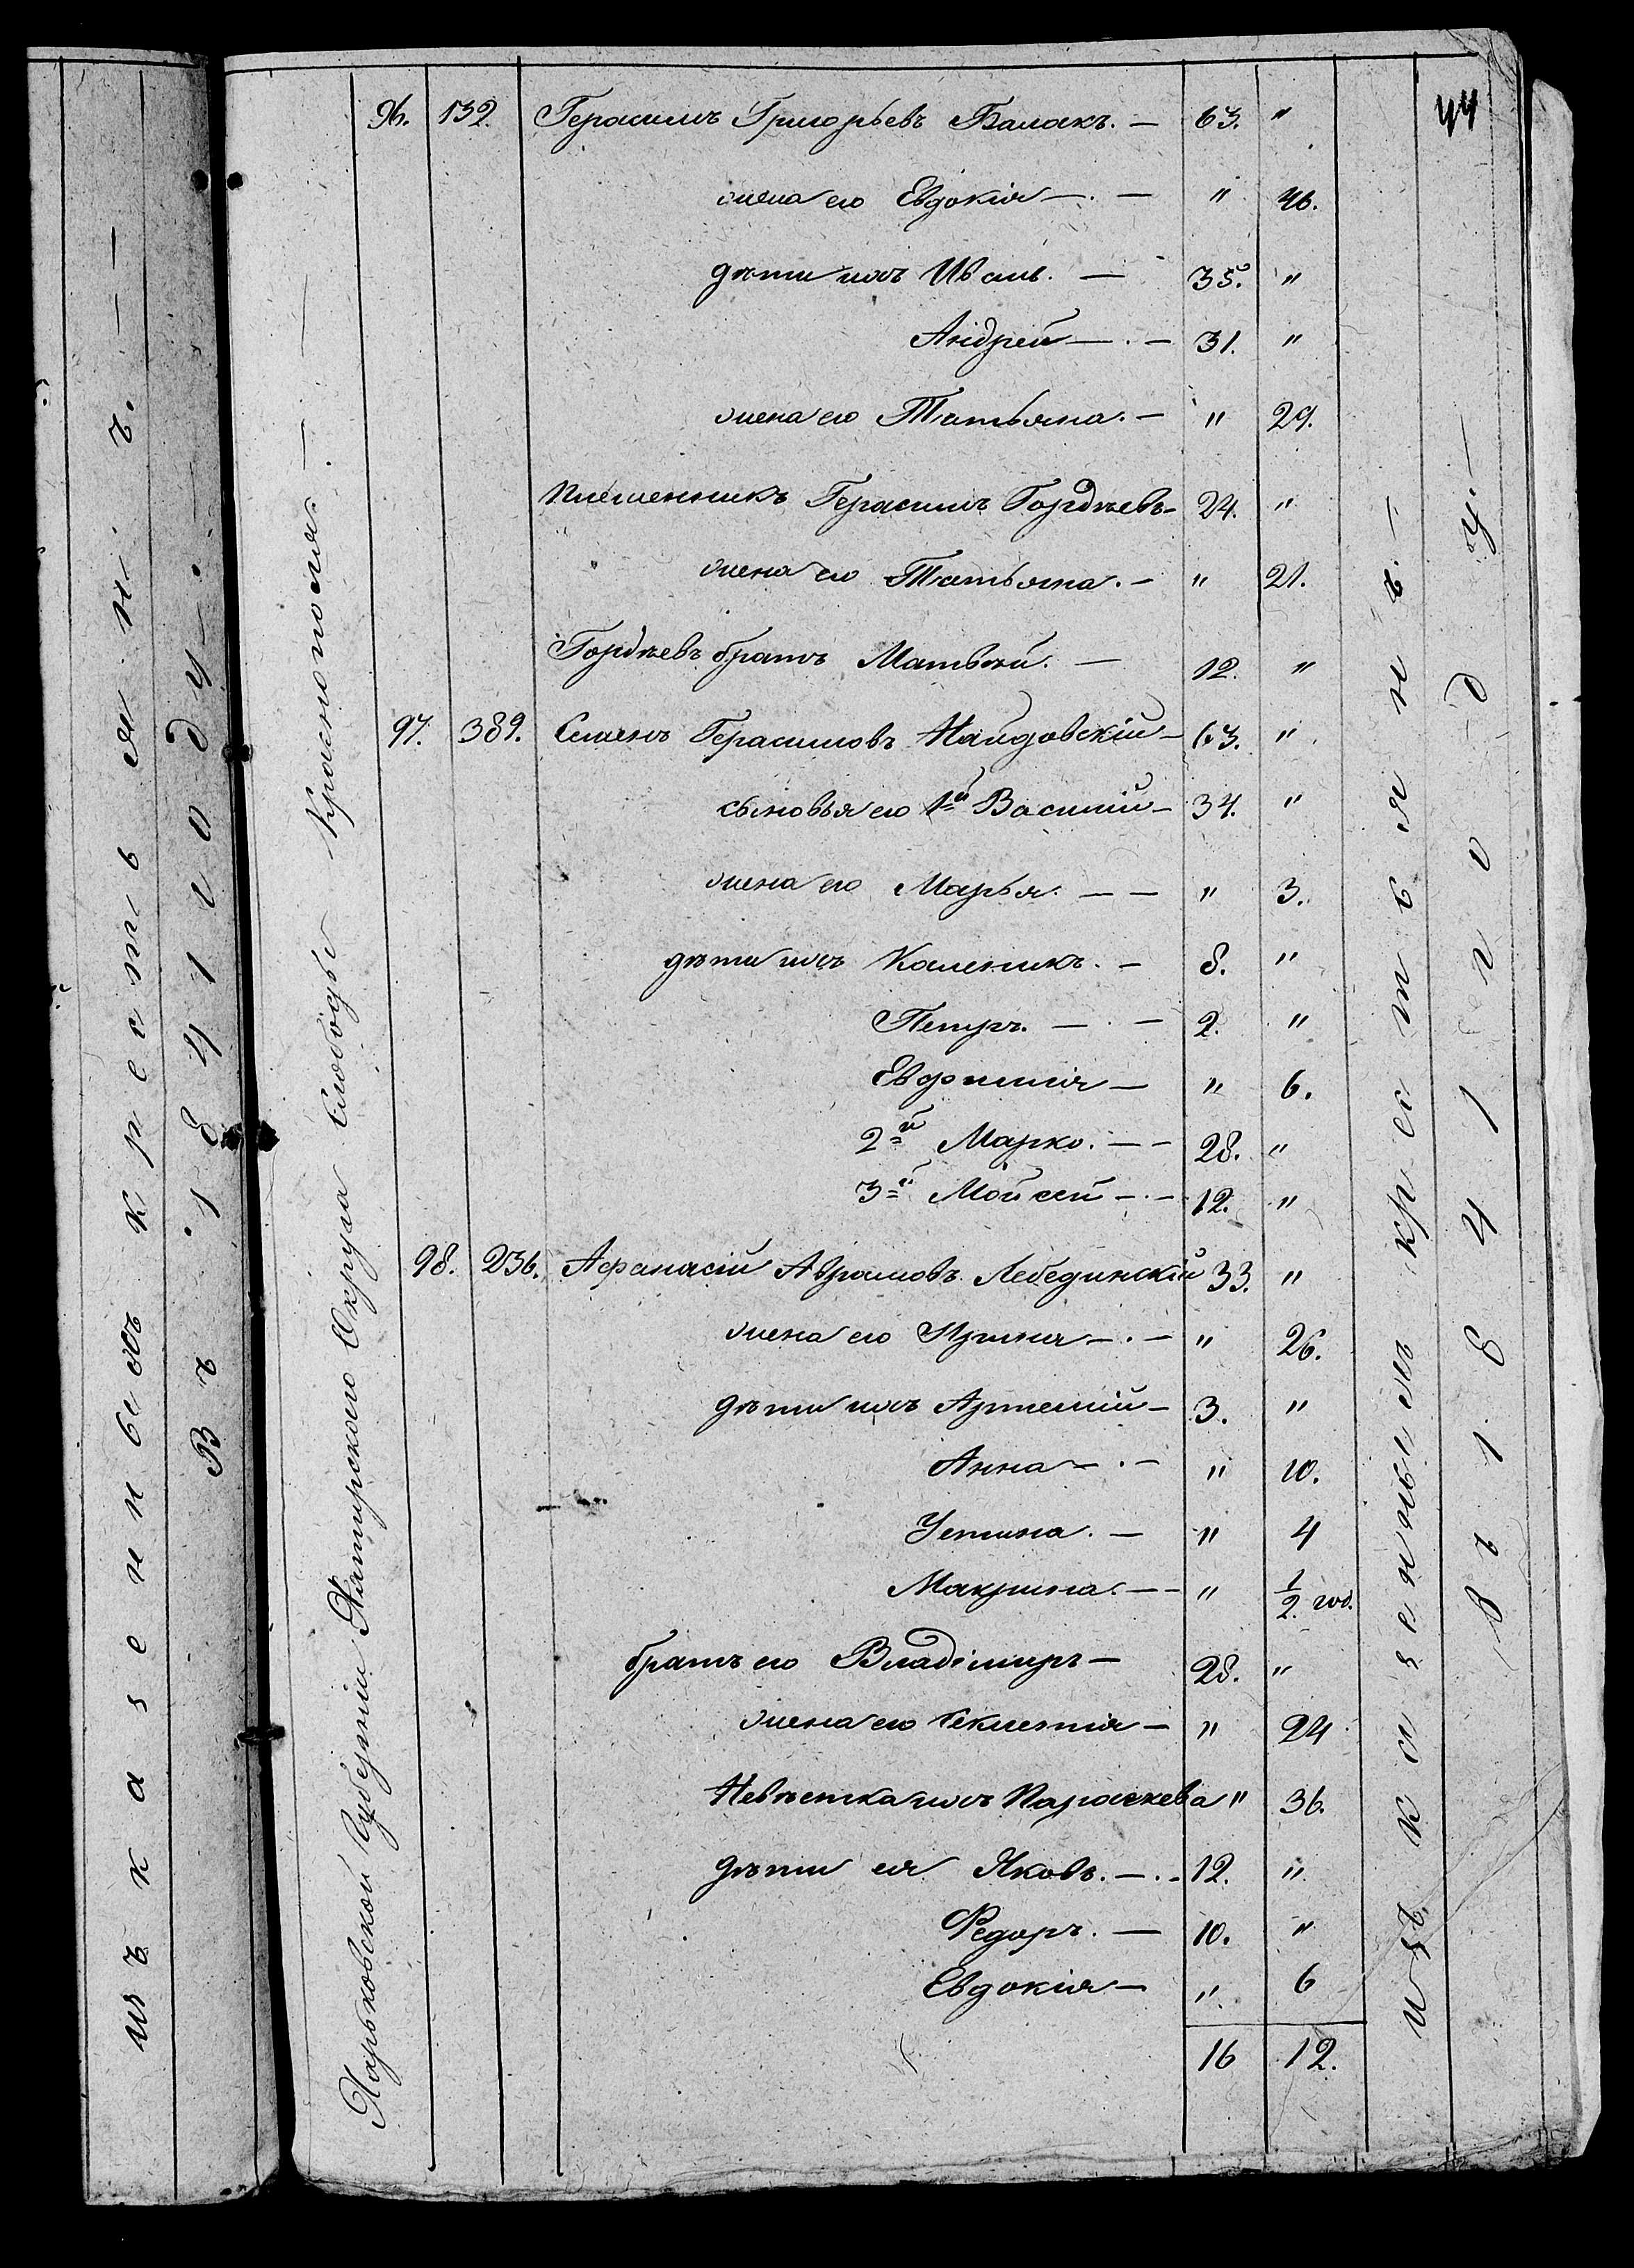 44
96. 132. Герасимъ Григорьевъ Балакъ. — 63. "
жена его Евдокія — . — " 46.
дѣти ихъ Иванъ. — 35. "
Андрей — . — 31. "
жена его Татьяна. — " 29.
племенникъ Герасимъ Гордѣевъ — 24. "
жена его Татьяна. — " 21.
Гордѣевъ братъ Матвей. — 12. "
97. 389. Семенъ Герасимовъ Найдовскій — 63. "
сыновья его 1й Василій — 34. "
жена его Марья. — — " 3.
дѣти ихъ Каленикъ. — 8. "
Петръ. — . — 2. "
Евфимія — " 6.
2й Марко. — — 28. "
3й Мойсей — . — 12. "
98. 236. Афанасій Аврамовъ Лебединскій 33. "
жена его Ирина — . — " 26.
дѣти ихъ Артемій — 3. "
Анна — . — " 10.
Устина. — " 4
Макрина. — — " 1/2. год.
братъ его Владіміръ — 28. "
жена его — " 24
Невѣстка ихъ Параскева " 36.
дѣти ея Яковъ. — . — 12. "
Федоръ. — 10. "
Евдокія — " 6
16 12.
Харьковской Губерніи Ахтырскаго Округа Слободы Краснополья. — . — —
изъ казенныхъ крестьянъ. —
Въ 1841 году. —